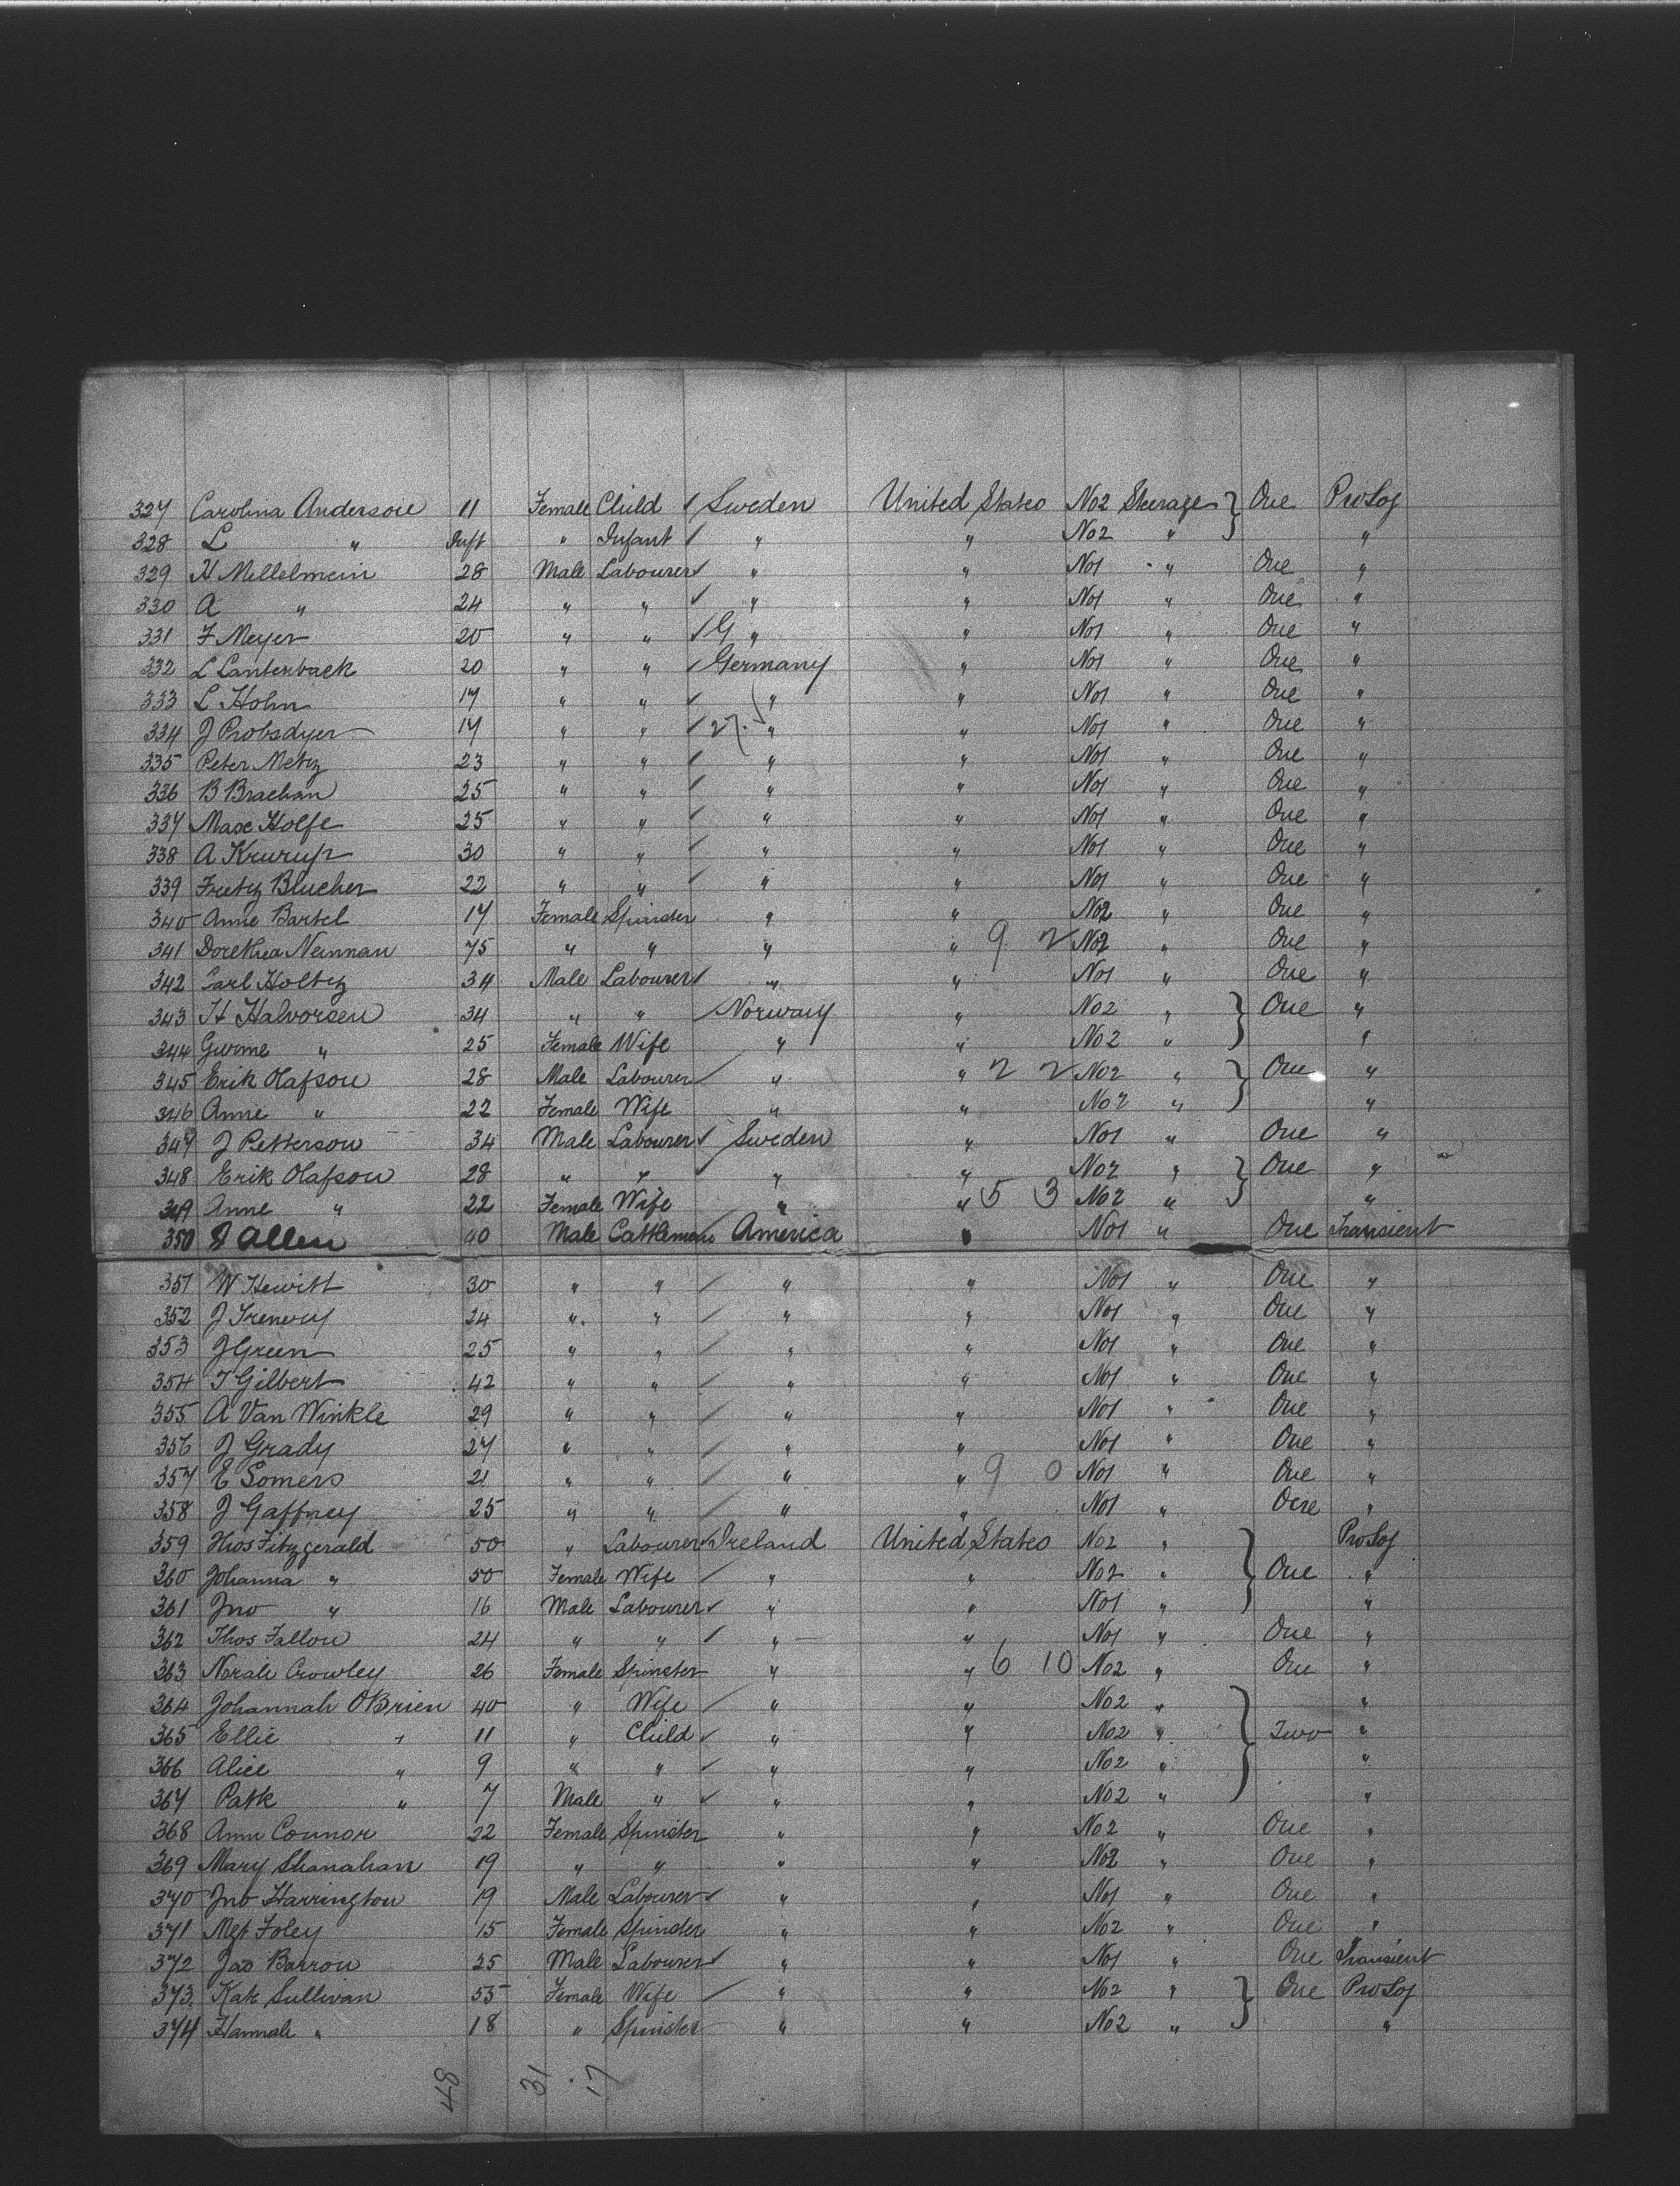 327 Carolina Anderson 11 Female Child ✓ Sweden United States No2 Steerage } One Pro Soj
328 L " Inft " Infant ✓ " " No2 " "
329 H Mellelmein 28 Male Labourer ✓ " " No1 " One "
330 A " 24 " " ✓ " " No1 " One "
331 F Meyer 20 " " ✓ G " " No1 " One "
332 L Lanterback 20 " " ✓ Germany " No1 " One "
333 L Hohn 17 " " ✓ " " No1 " One "
334 J Probsdyer 17 " " ✓ 27. " " No1 " One "
335 Peter Metz 23 " " ✓ " " No1 " One "
336 B Brachan 25 " " ✓ " " No1 " One "
337 Max Holfe 25 " " ✓ " " No1 " One "
338 A Krurup 30 " " ✓ " " No1 " One "
339 Fritz Blucher 22 " " ✓ " " No1 " One "
340 Anne Bartel 17 Female Spinster " " No2 " One "
341 Dorethea Neinnan 75 " " " " 9 2 No2 " One "
342 Carl Holtz 34 Male Labourer ✓ " " No1 " One "
343 H Halvorsen 34 " " ✓ Norway " No2 " } One "
344 Gurme " 25 Female Wife " " No2 " "
345 Erik Olafson 28 Male Labourer ✓ " " 2 2 No2 " } One "
346 Anne " 22 Female Wife " " No2 " "
347 J Petterson 34 Male Labourer ✓ Sweden " No1 " One "
348 Erik Olafson 28 " " ✓ " " No2 " } One "
349 Anne " 22 Female Wife " " 5 3 No2 " "
350 J Allen 40 Male Cattleman ✓ America " No1 " One Transient
351 W Hewitt 30 " " ✓ " " No1 " One "
352 J Trenery 24 " " ✓ " " No1 " One "
353 J Green 25 " " ✓ " " No1 " One "
354 T Gilbert 42 " " ✓ " " No1 " One "
355 A Van Winkle 29 " " ✓ " " No1 " One "
356 J Grady 27 " " ✓ " " No1 " One "
357 E Somers 21 " " ✓ " " 9 0 No1 " One "
358 J Gaffney 25 " " ✓ " " No1 " One "
359 Thos Fitzgerald 50 " Labourer ✓ Ireland United States No2 " } Pro Soj
360 Johanna " 50 Female Wife ✓ " " No2 " One "
361 Jno " 16 Male Labourer ✓ " " No1 " "
362 Thos Fallon 24 " " ✓ " " No1 " One "
363 Norah Crowley 26 Female Spinster " " 6 10 No2 " One "
364 Johannah OBrien 40 " Wife ✓ " " No2 " } "
365 Ellie " 11 " Child ✓ " " No2 " Two "
366 Alice " 9 " " ✓ " " No2 " "
367 Patk " 7 Male " ✓ " " No2 " "
368 Ann Connor 22 Female Spinster " " No2 " One "
369 Mary Shanahan 19 " " " " No2 " One "
370 Jno Harrington 19 Male Labourer ✓ " " No1 " One "
371 Mgt Foley 15 Female Spinster " " No2 " One "
372 Jas Barron 25 Male Labourer ✓ " " No1 " One Transient
373 Kate Sullivan 55 Female Wife ✓ " " No2 " } One Pro Soj
374 Hannah " 18 " Spinster " " No2 " "
48 31 17